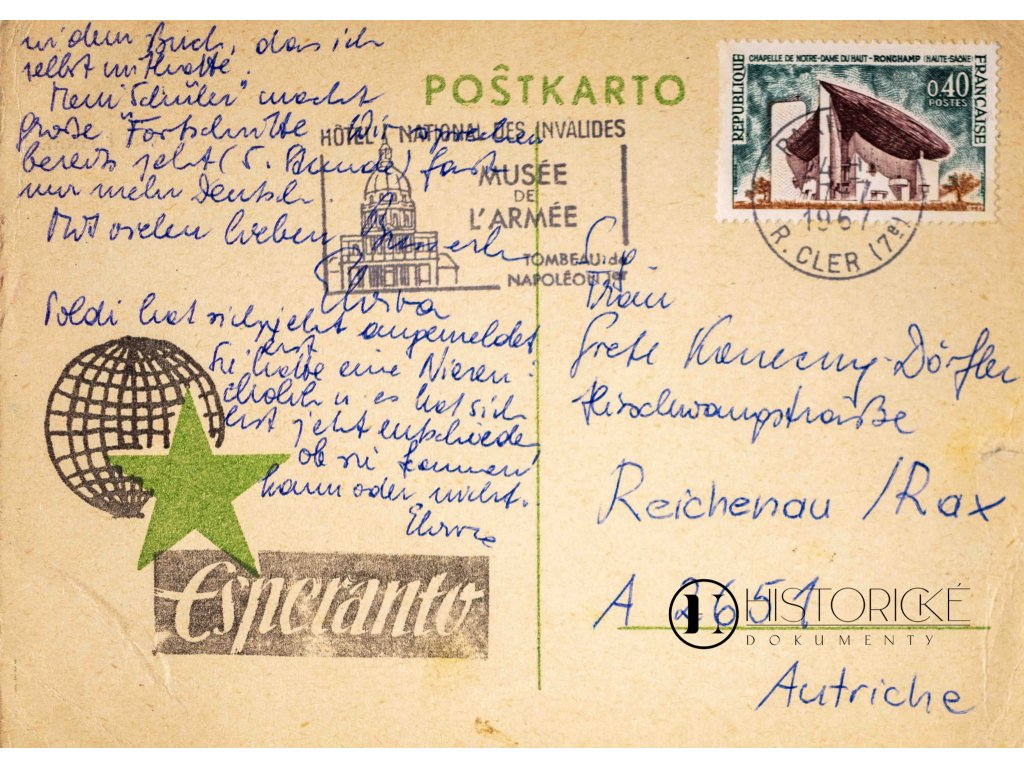 in dem Buch, das ich
selbst mithatte.
"Mein Schüler" macht
große Fortschritte. Wir sprechen
bereits jetzt (5. Stunde) fast
nur mehr Deutsch.
Mit vielen lieben
Poldi hat sich jetzt angemeldet
erst
Sie hatte eine Nieren-
kolik u es hat sich
erst jetzt entschieden
ob sie kommen
kann oder nicht.
POŜTKARTO
HÔTEL NATIONAL DES INVALIDES
MUSÉE
DE
L'ARMÉE
TOMBEAU de
NAPOLÉON 1er
RÉPUBLIQUE FRANÇAISE
CHAPELLE DE NOTRE-DAME DU HAUT - RONCHAMP (HAUTE-SAÔNE)
0,40
POSTES
1967
R. CLER (7e)
Frau
Grete Konecny-Dörfler
Hirschwangstraße
Reichenau /Rax
A 2651
Autriche
Esperanto
HISTORICKÉ
DOKUMENTY